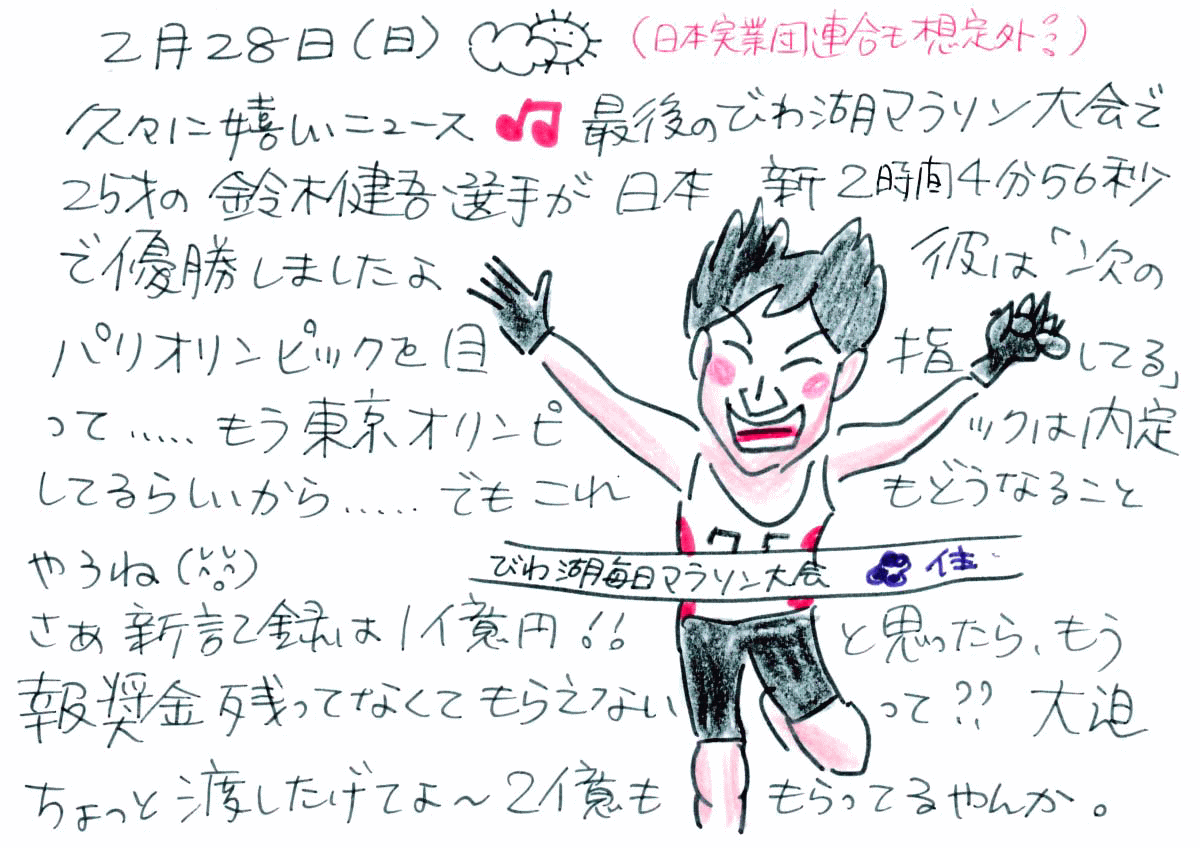 2月28日(日) (日本実業団連合も想定外?)
久々に嬉しいニュース 最後のびわ湖マラソン大会で
25才の鈴木健吾選手が 日本 新2時間4分56秒
で優勝しましたよ 彼は「次の
パリオリンピックを目 指 してる」
って.....もう東京オリンピ ックは内定
してるらしいから......でもこれ もどうなること
やろね
75
びわ湖毎日マラソン大会 佳
さぁ新記録は1億円!! と思ったら、もう
報奨金残ってなくてもらえない って?? 大迫
ちょっと渡したげてよ〜2億も もらってるやんか。